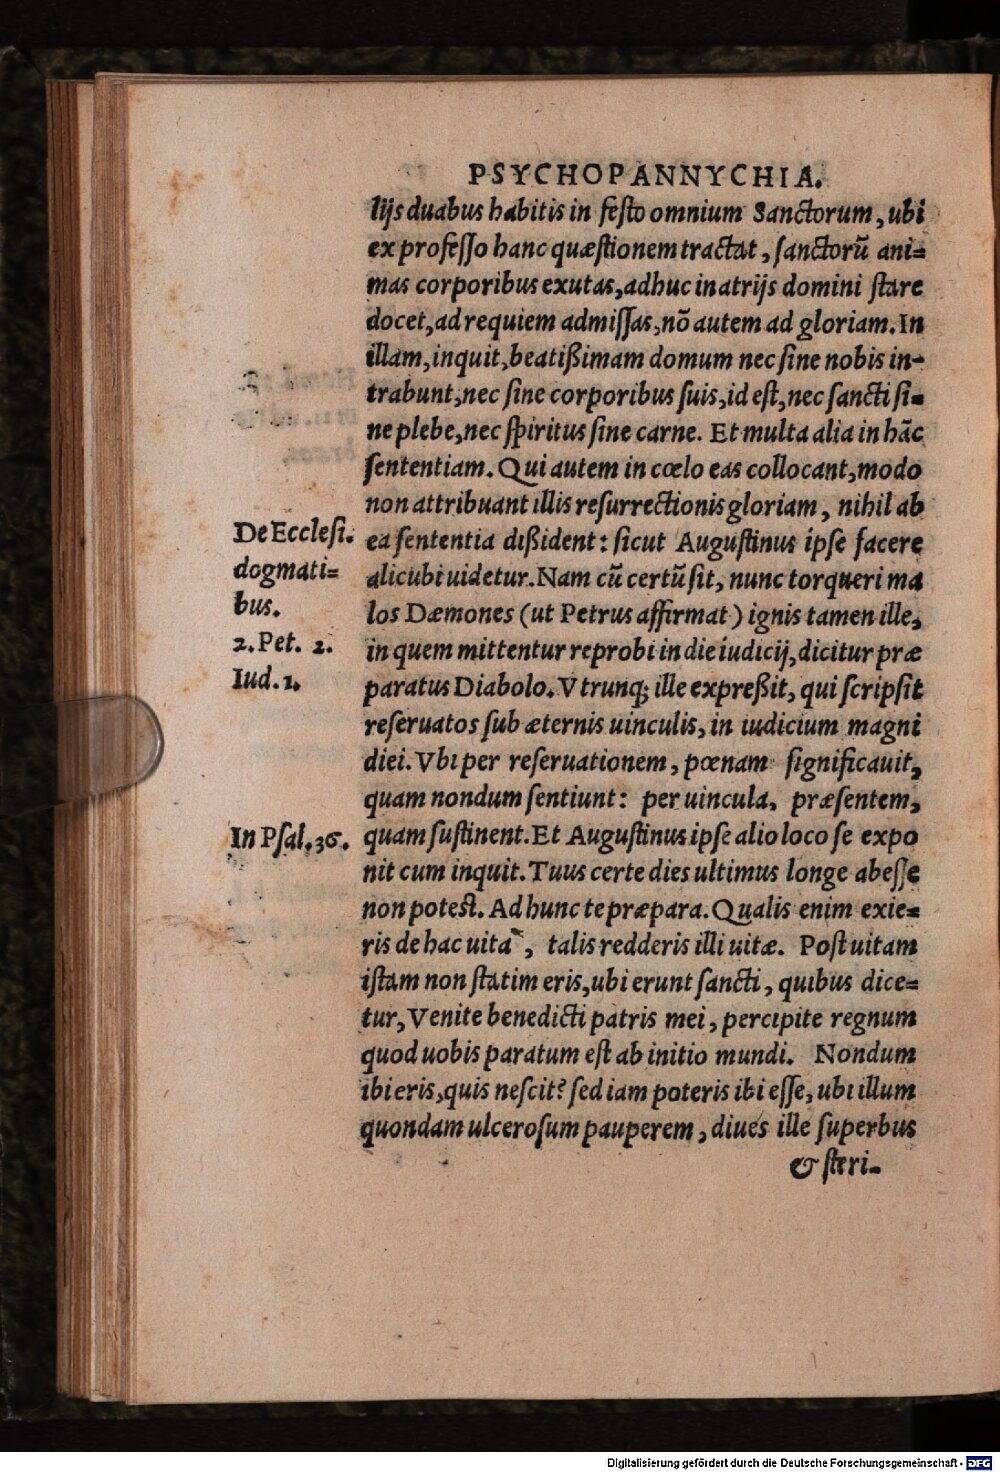 PSYCHOPANNYCHIA.
lijs duabus habitis in festo omnium Sanctorum, ubi
ex professo hanc quæstionem tractat, sanctorũ ani=
mas corporibus exutas, adhuc in atrijs domini stare
docet, ad requiem admissas, nõ autem ad gloriam. In
illam, inquit, beatißimam domum nec sine nobis in-
trabunt, nec sine corporibus suis, id est, nec sancti si=
ne plebe, nec spiritus sine carne. Et multa alia in hãc
sententiam. Qui autem in cœlo eas collocant, modo
non attribuant illis resurrectionis gloriam, nihil ab
De Ecclesi. ea sententia dißident: sicut Augustinus ipse facere
dogmati= alicubi uidetur. Nam cũ certũ sit, nunc torqueri ma
bus. los Dæmones (ut Petrus affirmat) ignis tamen ille,
2. Pet. 2. in quem mittentur reprobi in die iudicij, dicitur præ
Iud. 1. paratus Diabolo. Vtrunq; ille expreßit, qui scripsit
reseruatos sub æternis uinculis, in iudicium magni
diei. Vbi per reseruationem, pœnam significauit,
quam nondum sentiunt: per uincula, præsentem,
In Psal. 36. quam sustinent. Et Augustinus ipse alio loco se expo
nit cum inquit. Tuus certe dies ultimus longe abesse
non potest. Ad hunc te præpara. Qualis enim exie=
ris de hac uita, talis redderis illi uitæ. Post uitam
istam non statim eris, ubi erunt sancti, quibus dice=
tur, Venite benedicti patris mei, percipite regnum
quod uobis paratum est ab initio mundi. Nondum
ibi eris, quis nescit? sed iam poteris ibi esse, ubi illum
quondam ulcerosum pauperem, diues ille superbus
& steri-
Digitalisierung gefördert durch die Deutsche Forschungsgemeinschaft - DFG